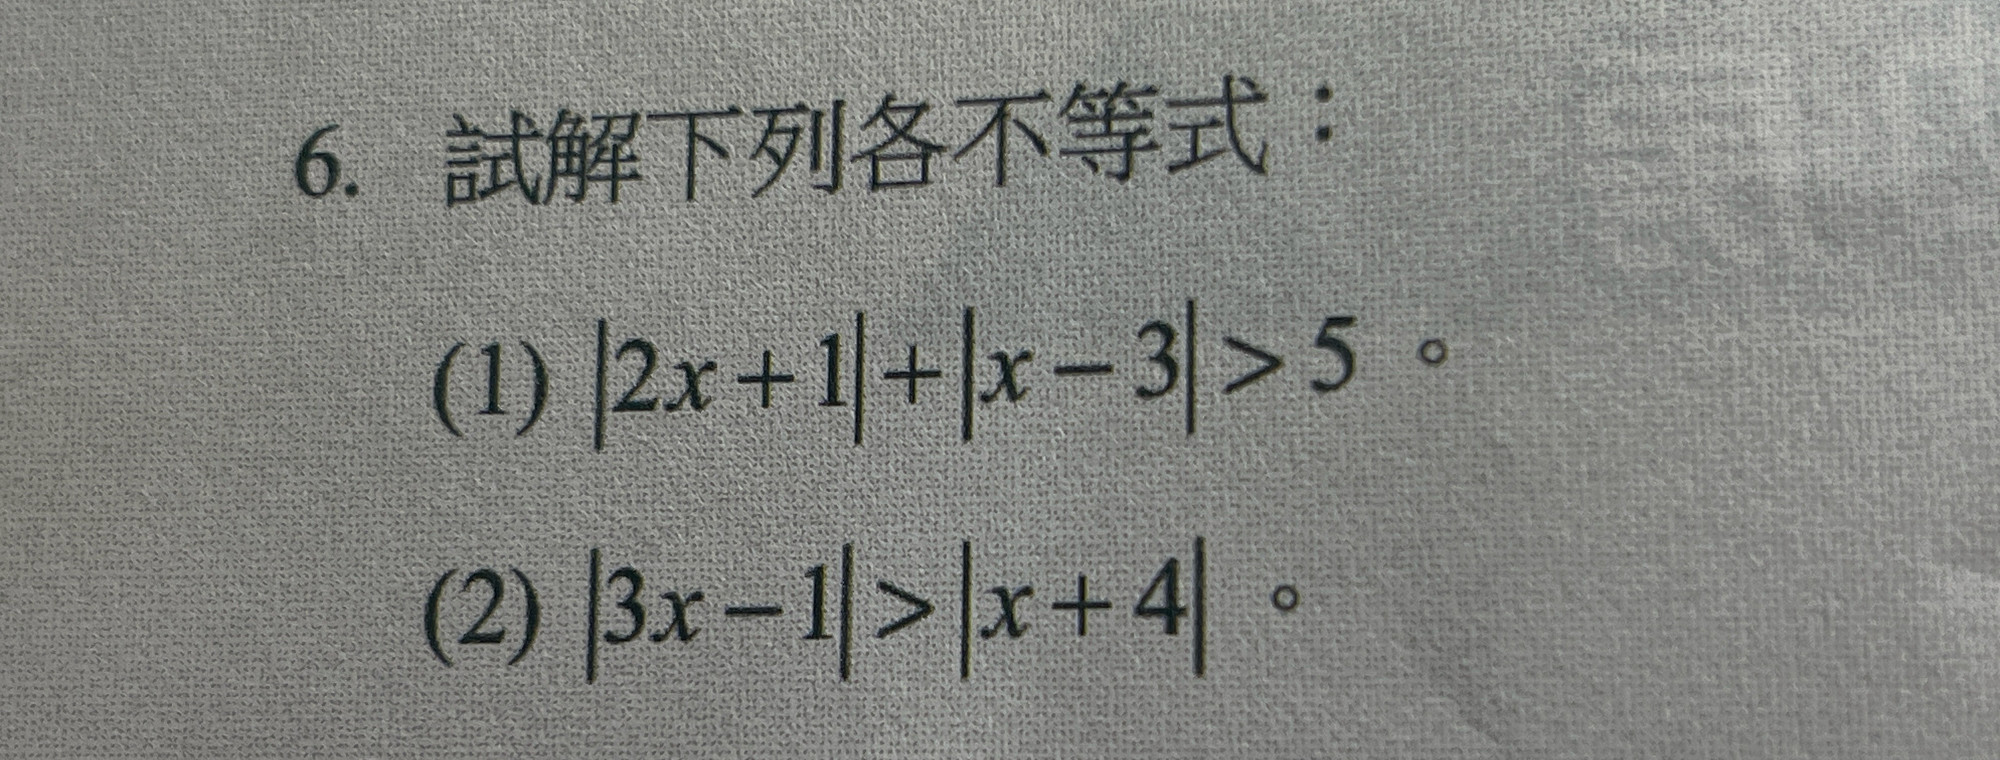 6. 試解下列各不等式：
(1) |2x+1|+|x-3|>5。
(2) |3x-1|>|x+4|。